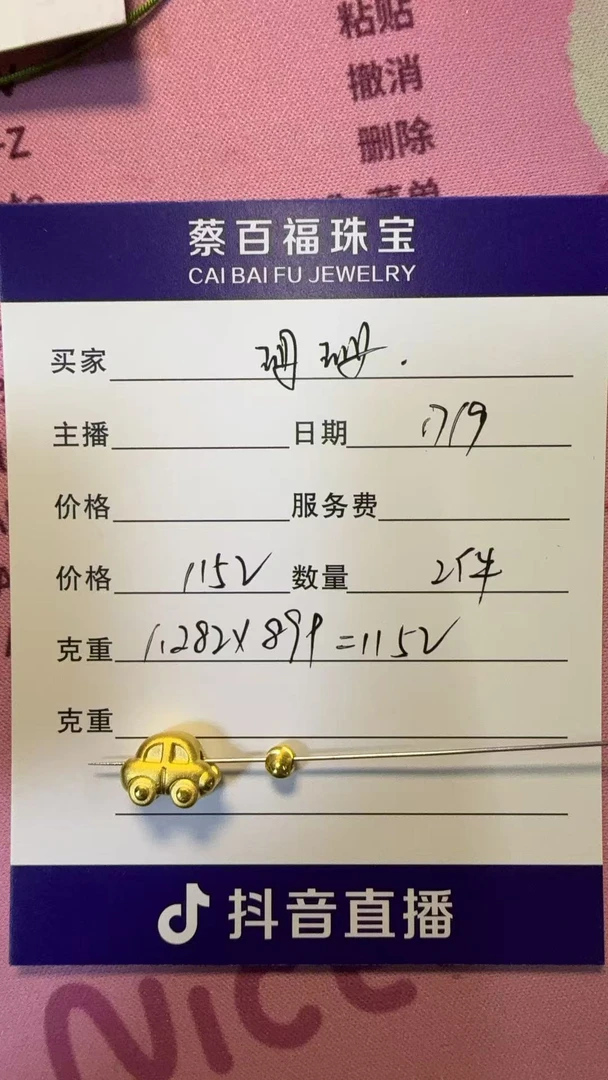 粘贴
撤消
-Z
删除
菜单
蔡百福珠宝
CAI BAI FU JEWELRY
买家 珊珊.
主播 日期 1/19
价格 服务费
价格 1152 数量 2件
克重 1.282×899=1152
克重
抖音直播
NICE